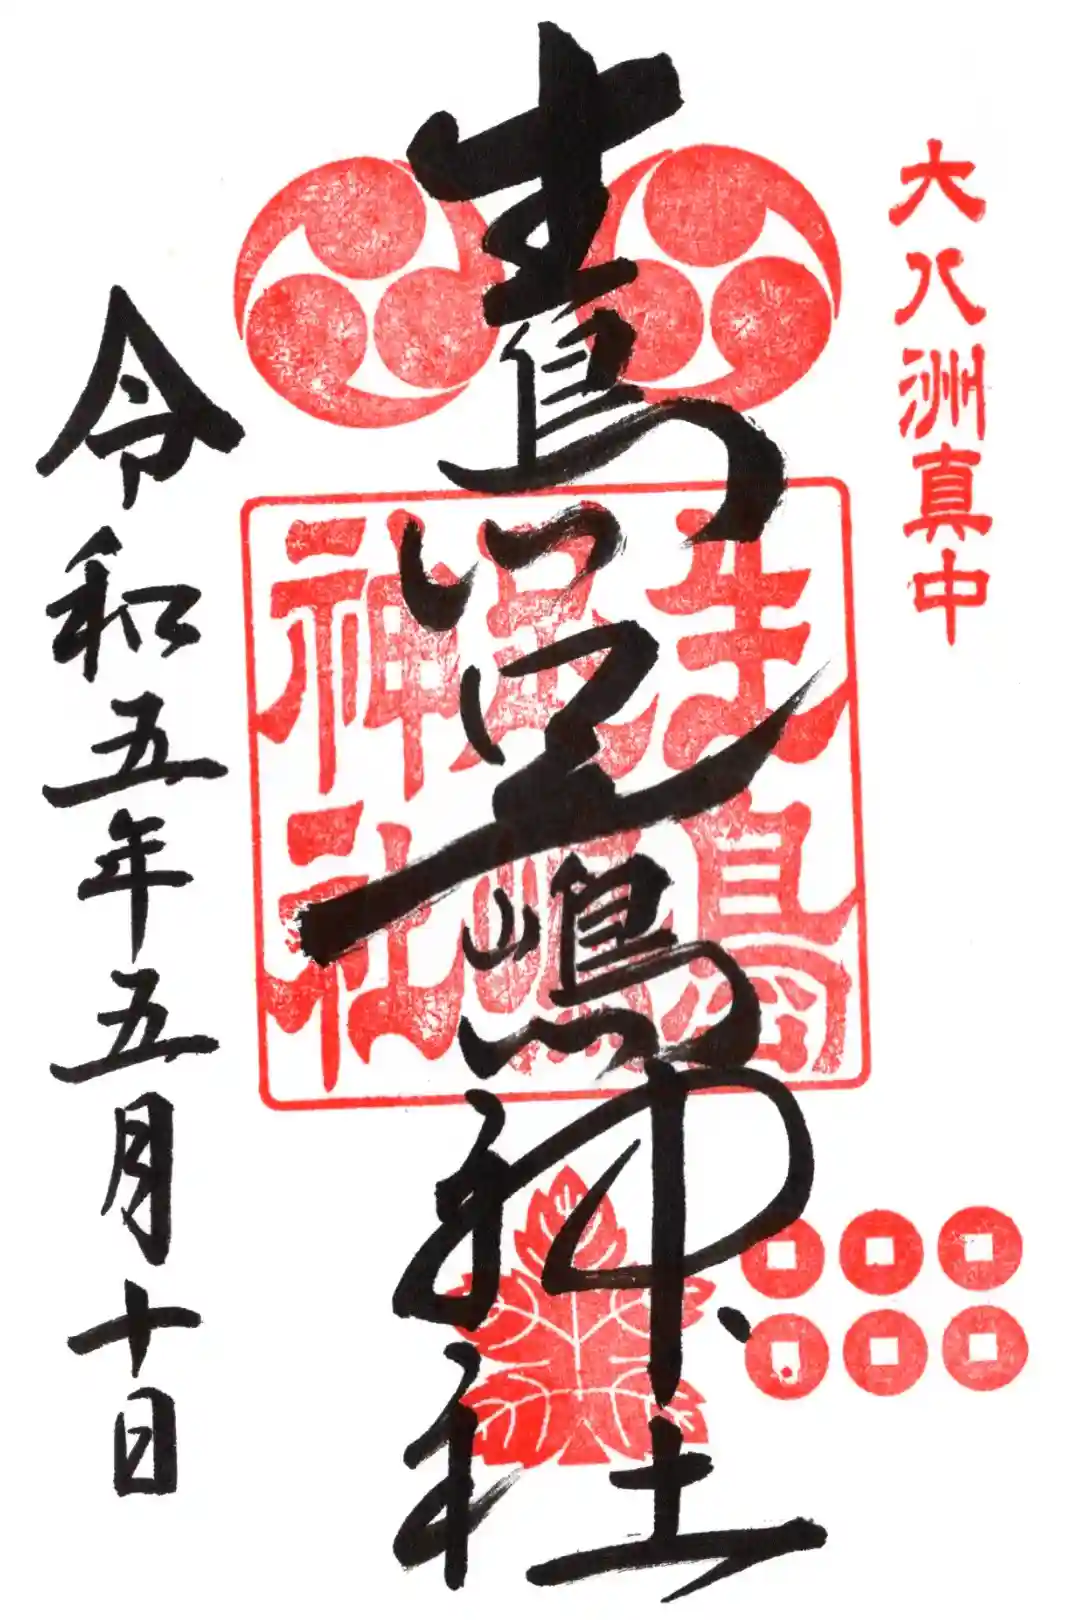 大八洲真中
生島足嶋神社
生島
足嶋
神社
令和五年五月十日